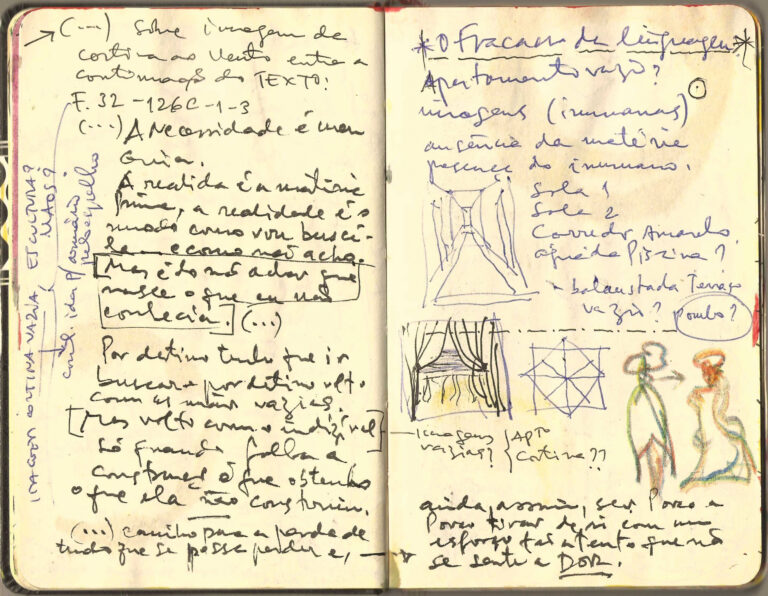 (...) sobre imagem da
cortina ao vento entra a
continuação do TEXTO:
F. 32 - 126C-1-3
(...) A necessidade é meu
Guia.
A realida é a matéria
prima, a realidade é o
modo como vou buscá-
la — e como não acho.
Mas é do não achar que
nasce o que eu não
conhecia. (...)
Por destino tudo que ir
buscar e por destino volto
com as mãos vazias.
[Mas volto com o indizível]
só quando falha a
construção é que obtenho
o que ela não construiu.
(...) caminho para a perda de
tudo que se possa perder e, —
IMAGEM CORTINA VAZIA, ESCULTURA?
MÃOS?
cont. ida p/ armário
pelo espelho
* O fracasso da linguagem *
Apartamento vazio?
imagens (inumanas)
ausência da matéria
presença do inumano.
Sala 1
Sala 2
Corredor Amarelo,
água da Piscina?
- balaustada Terraço
vazio? Pombo?
- imagens
vazias?
Apto
Cortina??
ainda assim, ser Pouco a
Pouco tirar de si com um
esforço tão atento que não
se sente a DOR.